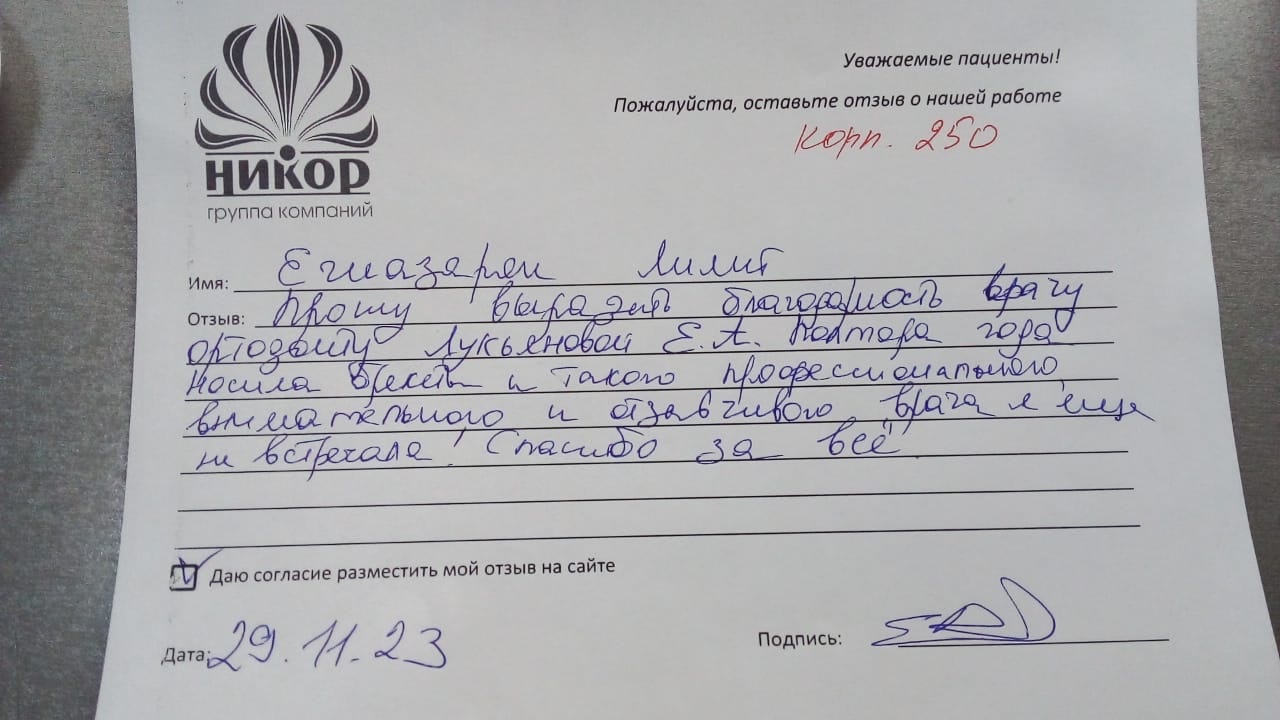 Уважаемые пациенты!
Пожалуйста, оставьте отзыв о нашей работе
Корп. 250
НИКОР
группа компаний
Имя: Егиазарян Лилит
Отзыв: Прошу выразить благодарность врачу
ортодонту Лукьяновой Е.А. Полтора года
носила брекеты и такого профессионального,
внимательного и отзывчивого врача я еще
не встречала! Спасибо за всё
Даю согласие разместить мой отзыв на сайте
Дата: 29.11.23
Подпись: